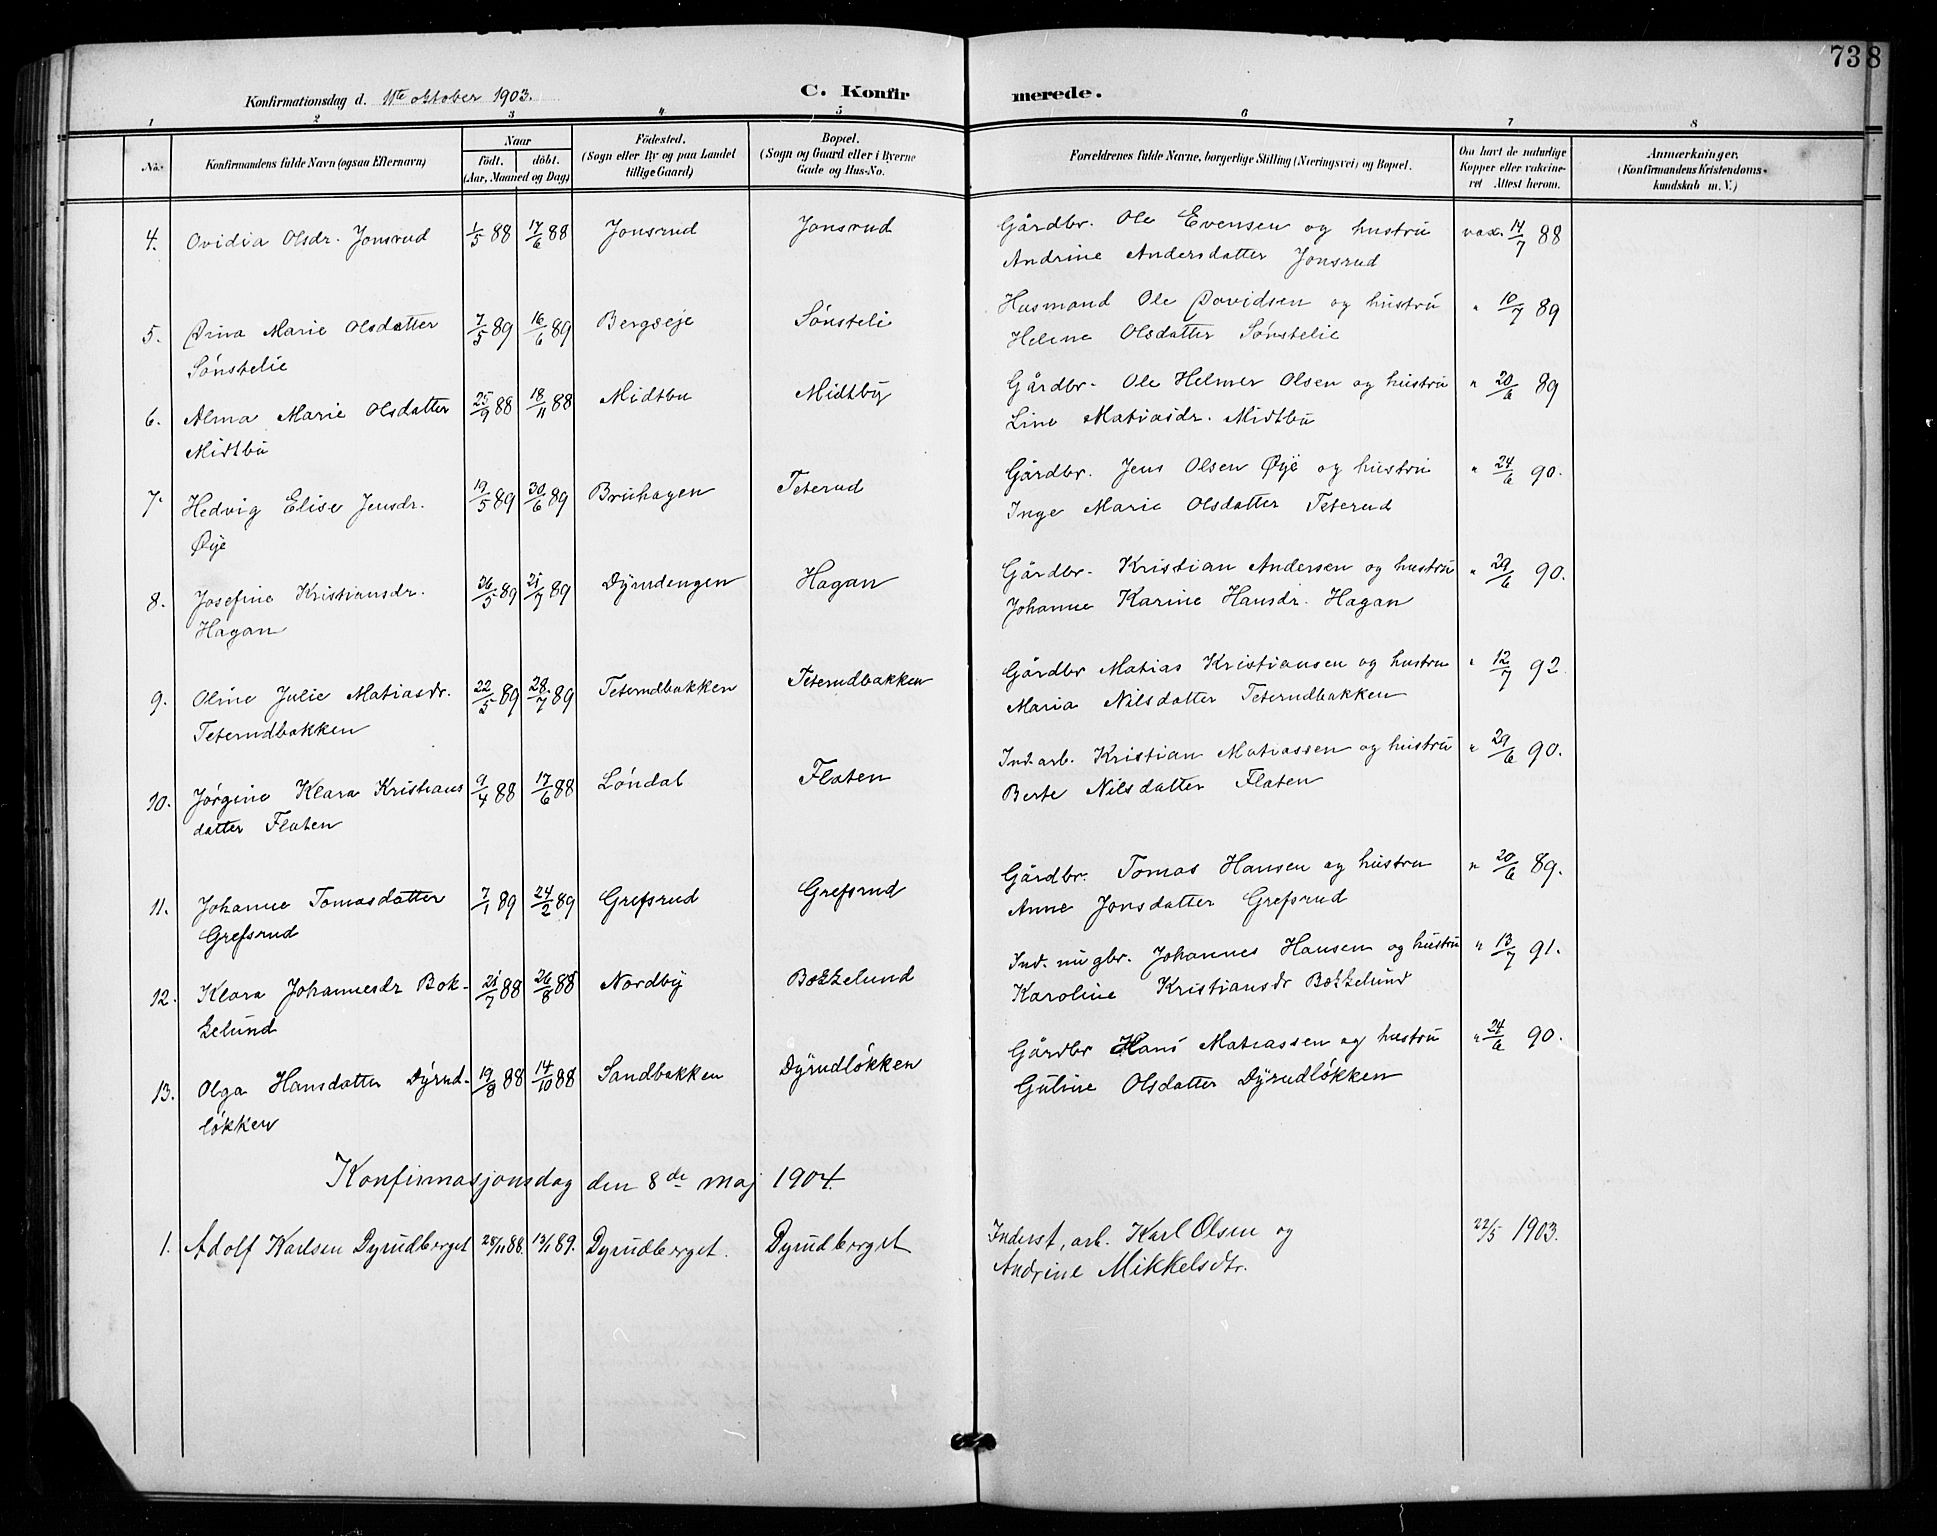 738
Konfirmationsdag d. 11te oktober 1903.
C. Konfirmerede.
1 2 3 4 5 6 7 8
No.
Konfirmandens fulde Navn (ogsaa Efternavn)
Naar
født. døbt.
(Aar, Maaned og Dag)
Fødested.
(Sogn eller By og paa Landet
tillige Gaard)
Bopæl.
(Sogn og Gaard eller i Byerne
Gade og Hus-No.
Forældrenes fulde Navne, borgerlige Stilling (Næringsvei) og Bopæl.
Om havt de naturlige
Kopper eller vaccine-
ret Attest herom.
Anmærkninger.
(Konfirmandens Kristendoms-
kundskab m. V.)
4. Ovidia Olsdr. Jonsrud 1/5 88 17/6 88 Jonsrud Jonsrud Gårdbr. Ole Evensen og hustru vax. 14/7 88
Andrine Andersdatter Jonsrud
5. Drina Marie Olsdatter 7/5 89 16/6 89 Bergseje Sønsteli Husmand Ole Davidsen og hustru " 10/7 89
Sønstelie Helene Olsdatter Sønstelie
6. Alma Marie Olsdatter 25/9 88 18/11 88 Midtbu Midtby Gårdbr. Ole Helmer Olsen og hustru " 20/6 89
Midtbu Line Matiasdr. Midtbu
7. Hedvig Elise Jensdr. 19/5 89 30/6 89 Bruhagen Teterud Gårdbr. Jens Olsen Øye og hustru " 24/6 90.
Øye Inge Marie Olsdatter Teterud
8. Josefine Kristiansdr. 26/5 89 21/7 89 Dyrudengen Hagan Gårdbr. Kristian Andersen og hustru " 29/6 90.
Hagan Johanne Karine Hansdr. Hagan
9. Oline Julie Matiasdr. 22/5 89 28/7 89 Teterudbakken Teterudbakken Gårdbr Matias Kristiansen og hustru " 12/7 92
Teterudbakken Maria Nilsdatter Teterudbakken
10. Jørgine Klara Kristians 9/4 88 17/6 88 Løndal Flaten Ind. arb. Kristian Matiassen og hustru " 29/6 90.
datter Flaten Berte Nilsdatter Flaten
11. Johanne Tomasdatter 7/1 89 24/2 89 Grefsrud Grefsrud Gårdbr. Tomas Hansen og hustru " 20/6 89.
Grefsrud Anne Jonsdatter Grefsrud
12. Klara Johannesdr Bok- 21/7 88 26/8 88 Nordby Bokkelund Ind. nu gbr. Johannes Hansen og hustru " 13/7 91.
kelund Karoline Kristiansdr Bokkelund
13. Olga Hansdatter Dyrud- 19/8 88 14/10 88 Sandbakken Dyrudløkken Gårdbr Hans Matiassen og hustru " 24/6 90.
løkken Guline Olsdatter Dyrudløkken
Konfirmasjonsdag den 8de maj 1904.
1. Adolf Karlsen Dyrudberget 28/11 88. 13/1 89. Dyrudberget. Dyrudberget Inderst, arb. Karl Olsen og 22/5 1903.
Andrine Mikkelsdtr.